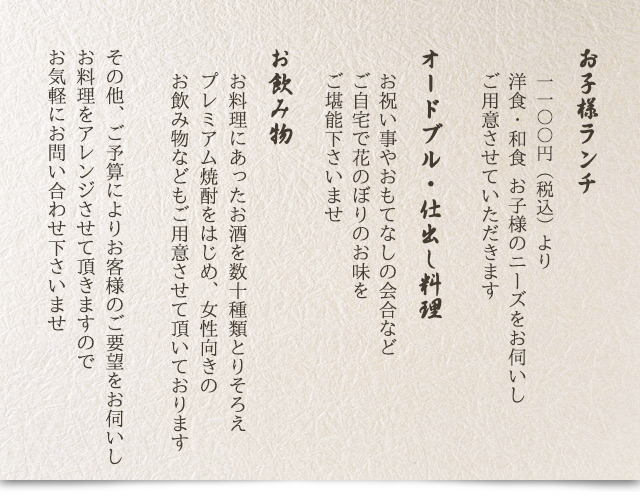 お子様ランチ
一一〇〇円（税込）より
洋食・和食 お子様のニーズをお伺いし
ご用意させていただきます
オードブル・仕出し料理
お祝い事やおもてなしの会合など
ご自宅で花のぼりのお味を
ご堪能下さいませ
お飲み物
お料理にあったお酒を数十種類とりそろえ
プレミアム焼酎をはじめ、女性向きの
お飲み物などもご用意させて頂いております
その他、ご予算によりお客様のご要望をお伺いし
お料理をアレンジさせて頂きますので
お気軽にお問い合わせ下さいませ